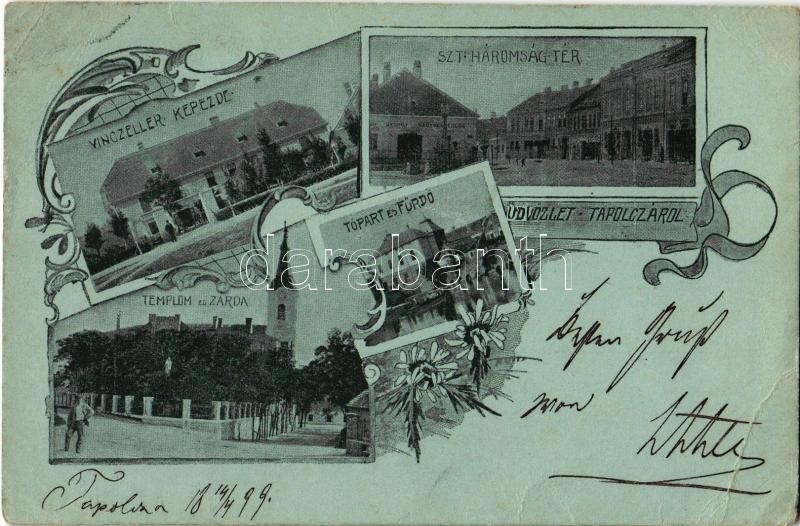 VINCZELLÉR KÉPEZDE
SZT. HÁROMSÁG-TÉR
ÜDVÖZLET - TAPOLCZÁRÓL
TÓPART ÉS FÜRDŐ
TEMPLOM és ZÁRDA
darabanth
Besten Gruß
von
Tapolcza 18 14/4 99.